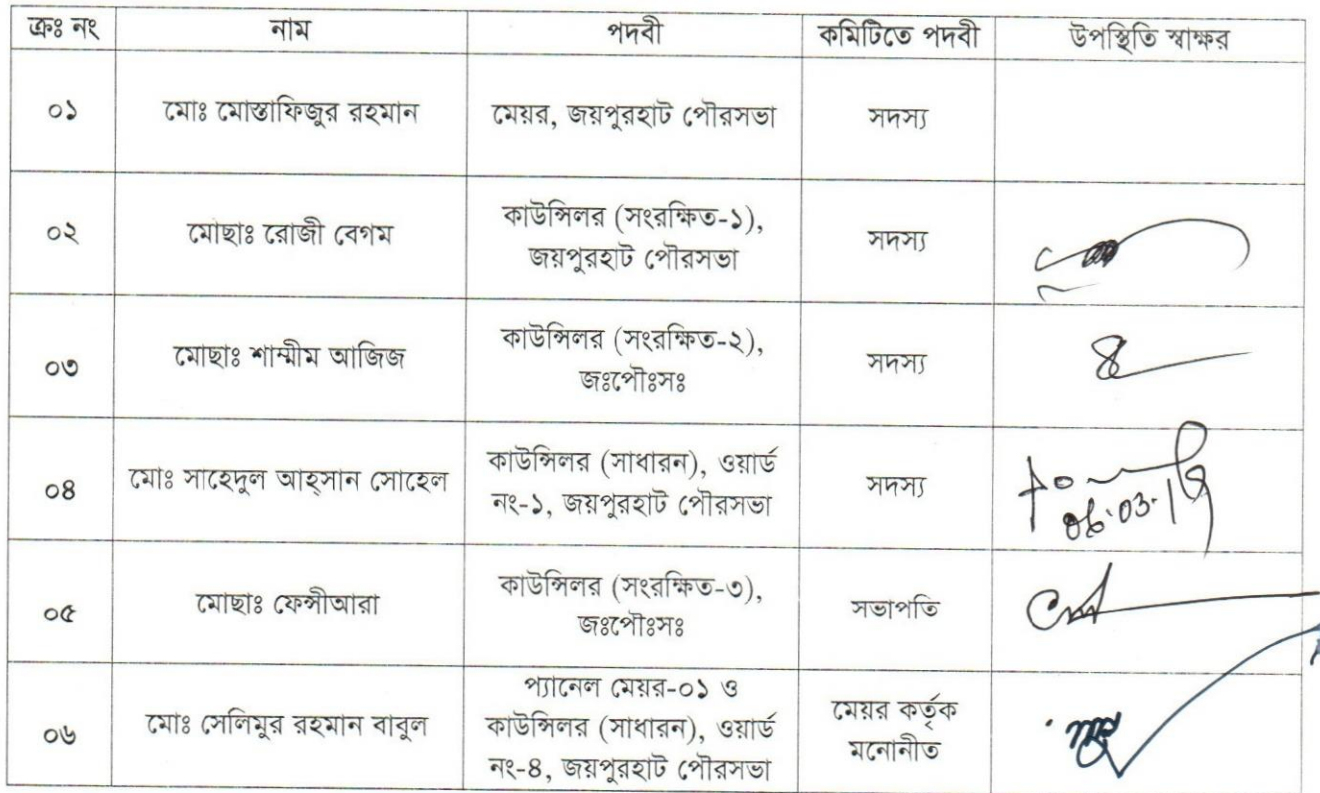 ক্রঃ নং নাম পদবী কমিটিতে পদবী উপস্থিতি স্বাক্ষর
০১ মোঃ মোস্তাফিজুর রহমান মেয়র, জয়পুরহাট পৌরসভা সদস্য
০২ মোছাঃ রোজী বেগম কাউন্সিলর (সংরক্ষিত-১),
জয়পুরহাট পৌরসভা সদস্য
০৩ মোছাঃ শাম্মীম আজিজ কাউন্সিলর (সংরক্ষিত-২),
জঃপৌঃসঃ সদস্য
০৪ মোঃ সাহেদুল আহ্সান সোহেল কাউন্সিলর (সাধারন), ওয়ার্ড
নং-১, জয়পুরহাট পৌরসভা সদস্য
০৫ মোছাঃ ফেন্সীআরা কাউন্সিলর (সংরক্ষিত-৩),
জঃপৌঃসঃ সভাপতি
০৬ মোঃ সেলিমুর রহমান বাবুল প্যানেল মেয়র-০১ ও
কাউন্সিলর (সাধারন), ওয়ার্ড
নং-৪, জয়পুরহাট পৌরসভা মেয়র কর্তৃক
মনোনীত